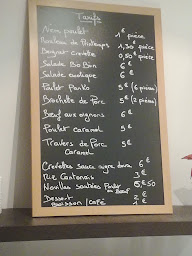 Tarifs
Nem poulet 1€ pièce
Rouleau de Printemps 1,30€ pièce
Beignet crevette 0,50€ pièce
Salade Bo Bun 6€
Salade exotique 6€
Poulet Panko 5€ (6 pièces)
Brochette de Porc 5€ (2 pièces)
Bœuf aux oignons 6€
Poulet Caramel 5€
Travers de Porc 5€
Caramel
Crevettes sauce aigre douce 6€
Riz Cantonais 3€
Nouilles sautées Poulet 5€50
ou Bœuf
Dessert 2€
Boisson / Café 1€